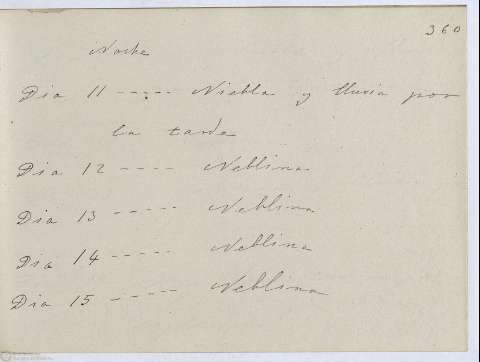 360
Noche
Dia 11 ----- Niebla y lluvia por
la tarde
Dia 12 ---- Neblina
Dia 13 ----- Neblina
Dia 14 ----- Neblina
Dia 15 ----- Neblina